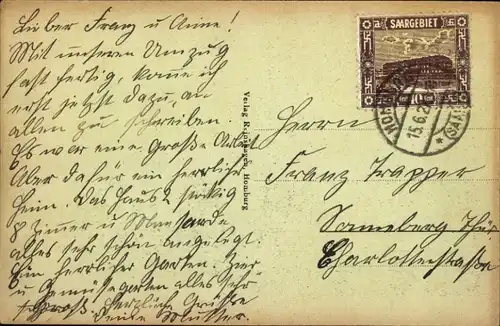 Lieber Franz u Anne!
Mit unseren Umzug
fast fertig, komme ich
erst jetzt dazu, an
allen zu schreiben.
Es war eine Große Arbeit
Aber dafür ein herrliches
Heim. Das Haus 2 stökig
8 Zimer u Mansarde
alles sehr schön angelegt.
Ein herrlicher Garten. Zier
u Gemüsegarten alles sehr
groß. Herzliche Grüße
Deine Mutter.
Verlag Homburg
SAARGEBIET
10
HOMBURG
15.6.2
(SAAR
Herrn
Franz Trapper
Sonneberg Thür
Charlottenstraße